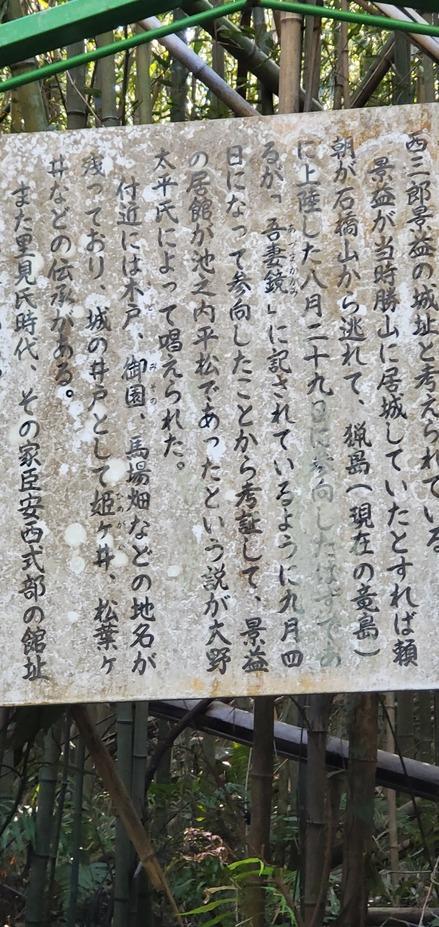 西三郎景益の城址と考えられている
景益が当時勝山に居城していたとすれば頼
朝が石橋山から逃れて、猟島(現在の竜島)
に上陸した八月二十九日に参向したはずであ
るが「吾妻鏡」に記されているように九月四
日になって参向したことから考証して、景益
の居館が池之内平松であったという説が大野
太平氏によって唱えられた。
付近には木戸、御園、馬場畑などの地名が
残っており、城の井戸として姫ヶ井、松葉ヶ
井などの伝承がある。
また里見氏時代、その家臣安西式部の館址